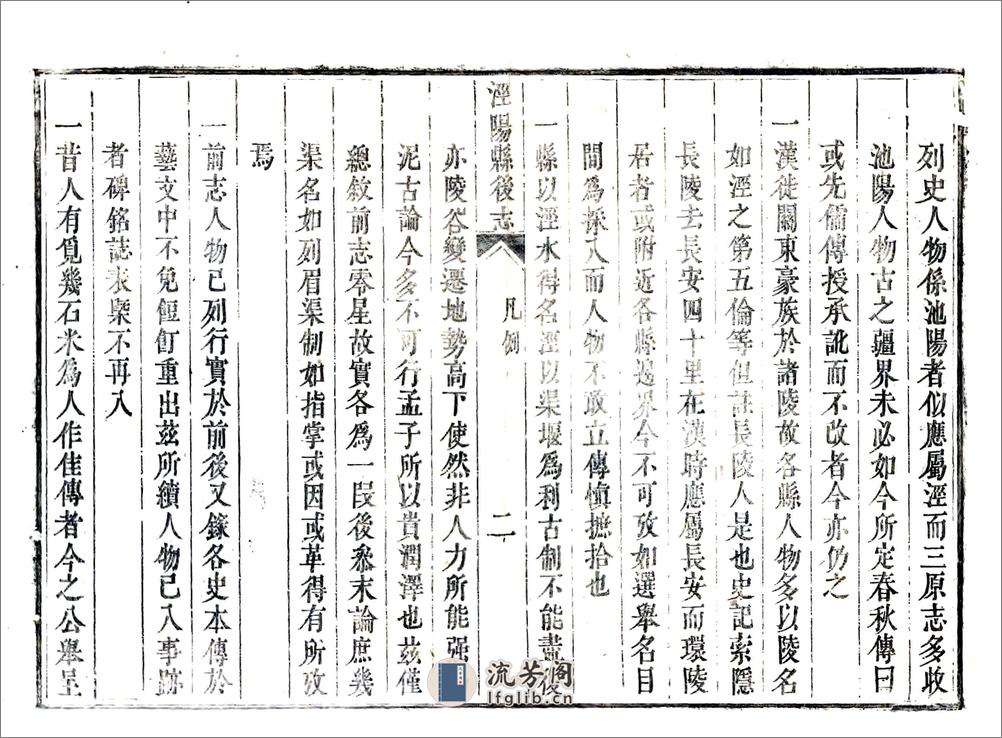 列史人物係池陽者似應屬涇而三原志多收
池陽人物古之疆界未必如今所定春秋傳曰
或先儒傳授承訛而不改者今亦仍之
一漢徙關東豪族於諸陵故各縣人物多以陵名
如涇之第五倫等但註長陵人是也史記索隱
長陵去長安四十里在漢時應屬長安而環陵
居者或附近各縣邊界今不可攷如選舉名目
間為採入而人物不敢立傳慎摭拾也
一縣以涇水得名涇以渠堰為利古制不能盡復
涇陽縣後志
凡例
二
亦陵谷變遷地勢高下使然非人力所能强
泥古論今多不可行孟子所以貴潤澤也茲僅
總敘前志零星故實各為一段後叅末論庶幾
渠名如列眉渠制如指掌或因或革得有所攷
焉
一前志人物已列行實於前後又錄各史本傳於
藝文中不免餖飣重出茲所續人物已入事跡
者碑銘誌表槩不再入
一昔人有覓幾石米為人作佳傳者今之公舉呈
流芳阁
lfglib.cn